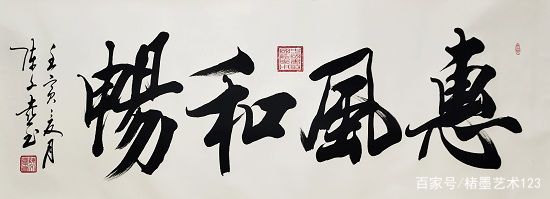 惠風和暢
壬寅夏月
百家号/楮墨艺术123